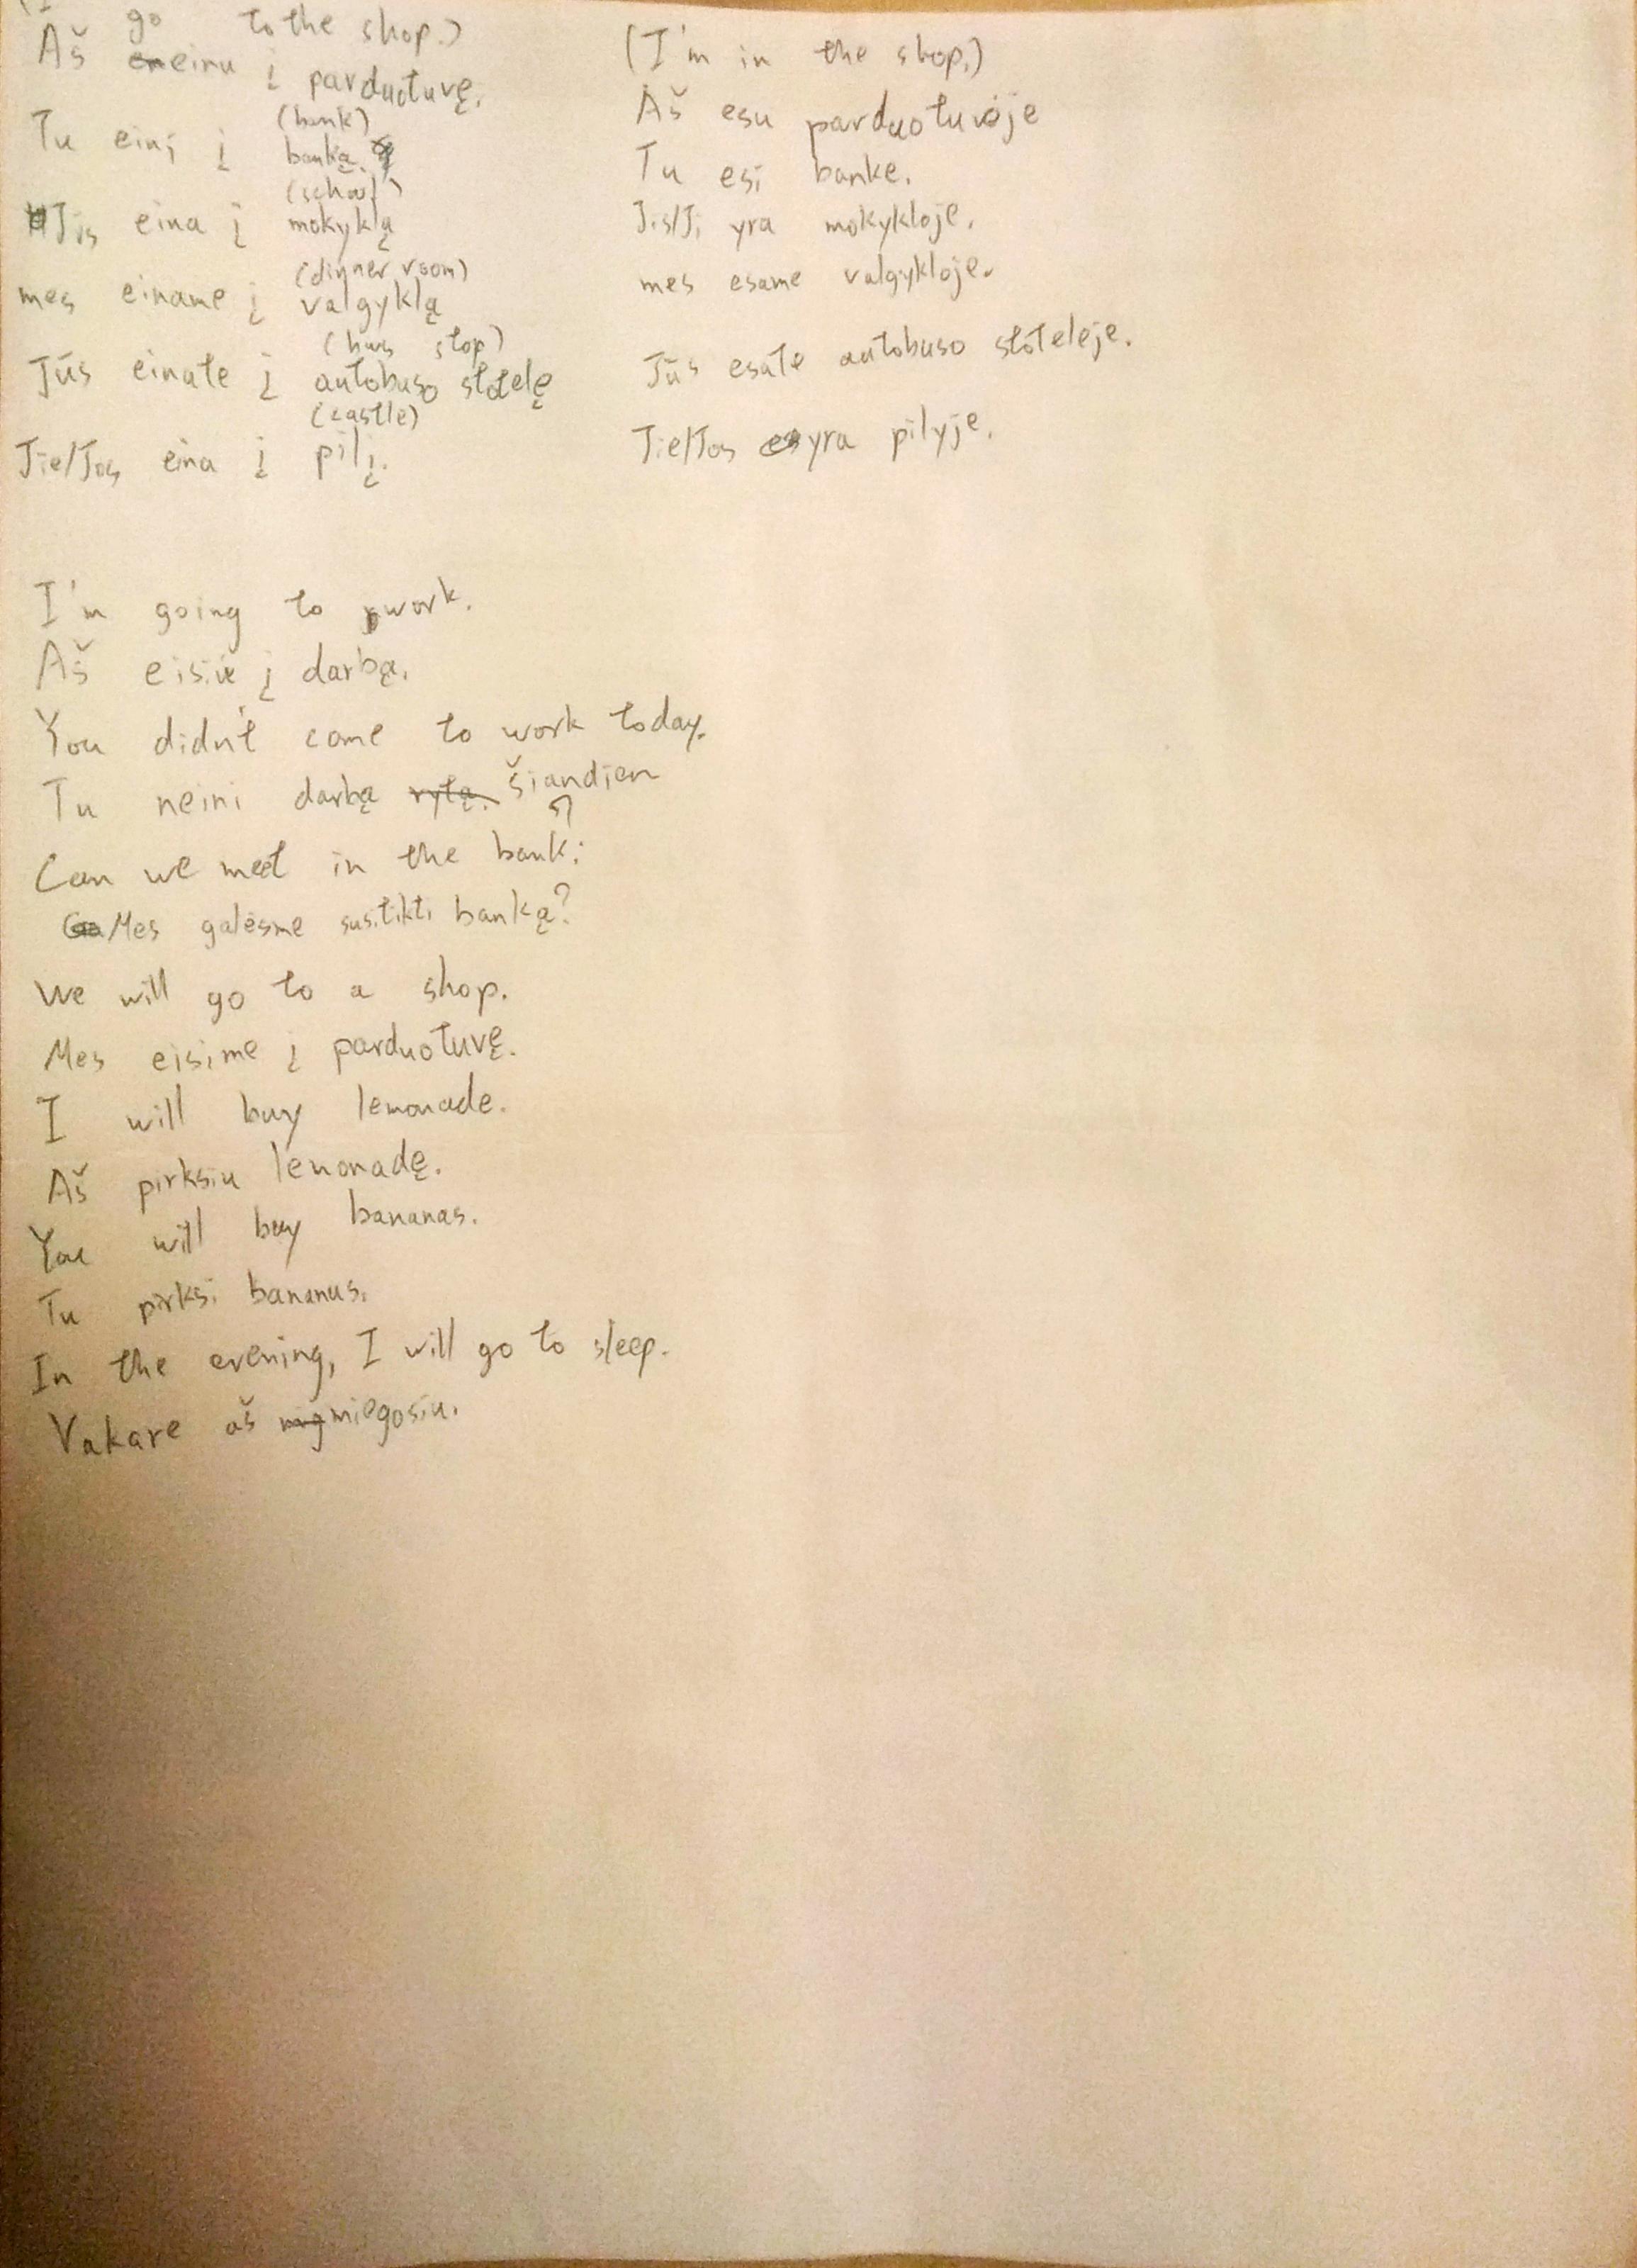 go to the shop.)
Aš einu į parduotuvę.
(bank)
Tu eini į banką.
(school)
Jis eina į mokyklą
(dinner room)
mes einame į valgyklą
(bus stop)
Jūs einate į autobuso stotelę
(castle)
Jie/Jos eina į pilį.
(I'm in the shop.)
Aš esu parduotuvėje
Tu esi banke.
Jis/Ji yra mokykloje.
mes esame valgykloje.
Jūs esate autobuso stoteleje.
Jie/Jos yra pilyje.
I'm going to work.
Aš eisiu į darbą.
You didn't come to work today.
Tu neini darbą rytą. šiandien
Can we meet in the bank?
Mes galėsme susitikti banką?
We will go to a shop.
Mes eisime į parduotuvę.
I will buy lemonade.
Aš pirksiu lemonadę.
You will buy bananas.
Tu pirksi bananus.
In the evening, I will go to sleep.
Vakare aš miegosiu.